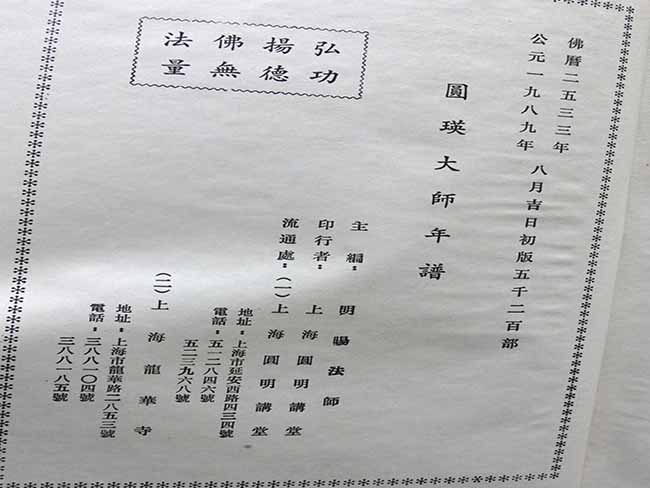 佛曆二五三三年
公元一九八九年 八月吉日初版五千二百部
圓瑛大師年譜
弘揚佛法
功德無量
主編：明暘法師
印行者：上海圓明講堂
流通處：(一)上海圓明講堂
地址：上海市延安西路四三四號
電話：五一二八四六號
五二三九六八號
(二)上海龍華寺
地址：上海市龍華路二八五三號
電話：三八八一〇四號
三八八一八五號